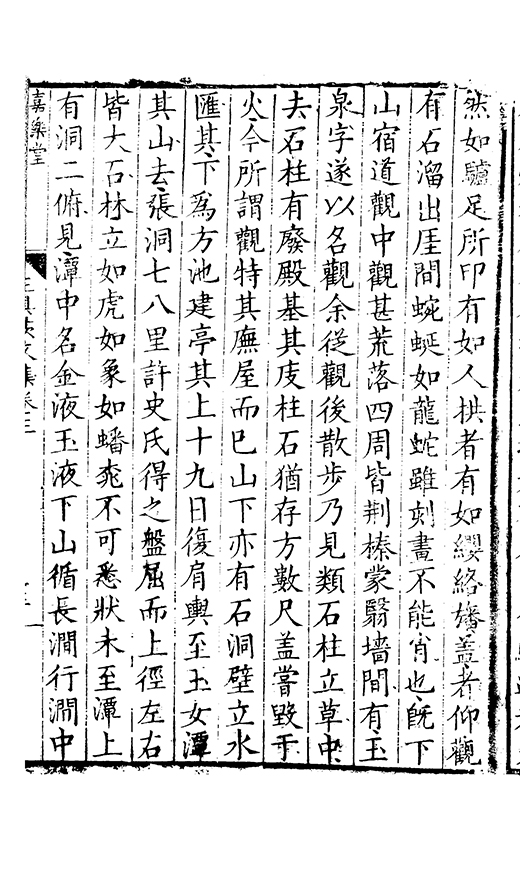 然如驢足所印有如人拱者有如纓絡旛蓋者仰觀
有石溜出厓間蜿蜒如龍蛇雖刻畫不能肖也旣下
山宿道觀中觀甚荒落四周皆荆榛蒙翳墻間有玉
泉字遂以名觀余從觀後散步乃見類石柱立草中
去石柱有廢殿基其庋柱石猶存方數尺盖嘗毀于
火今所謂觀特其廡屋而已山下亦有石洞壁立水
匯其下爲方池建亭其上十九日復肩輿至玉女潭
其山去張洞七八里許史氏得之盤屈而上徑左右
皆大石林立如虎如象如蟠虺不可悉狀未至潭上
有洞二俯見潭中名金液玉液下山循長澗行澗中
嘉樂堂
文集卷三